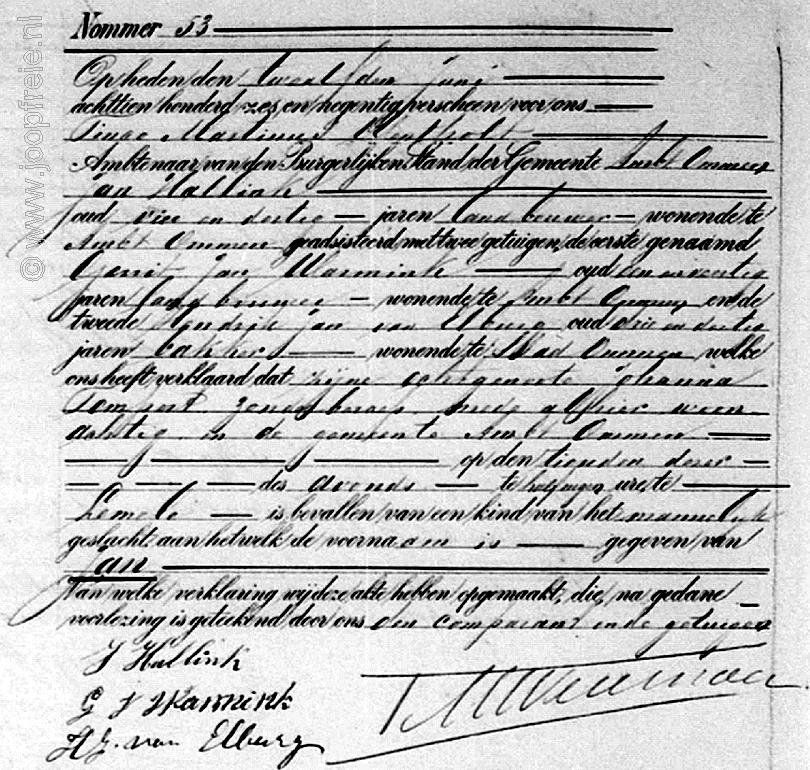 Nommer 53
Op heden den twaalfden juni
achttien honderd zes en negentig, verscheen voor ons
Martinus
Ambtenaar van den Burgerlijken Stand der Gemeente Ambt Ommen
Jan Hallink
oud vier en dertig jaren landbouwer wonende te
Ambt Ommen geadsisteerd met twee getuigen, de eerste genaamd
Gerrit Jan Warmink oud
jaren landbouwer wonende te Ambt Ommen en de
tweede Hendrik Jan van Elburg oud drie en dertig
jaren bakker wonende te Stad Ommen welke
ons heeft verklaard dat zijne echtgenoote Johanna
zonder beroep mede alhier woon-
achtig in de gemeente Ambt Ommen
op den tienden dezer
des avonds te half negen ure, te
Lemele is bevallen van een kind van het mannelijk
geslacht, aan hetwelk de voornaam is gegeven van
Jan
Van welke verklaring wij deze akte hebben opgemaakt, die, na gedane
voorlezing is geteekend door ons den comparant en de getuigen
J Hallink
G J Warmink
HJ. van Elburg
© www.joopfreie.nl